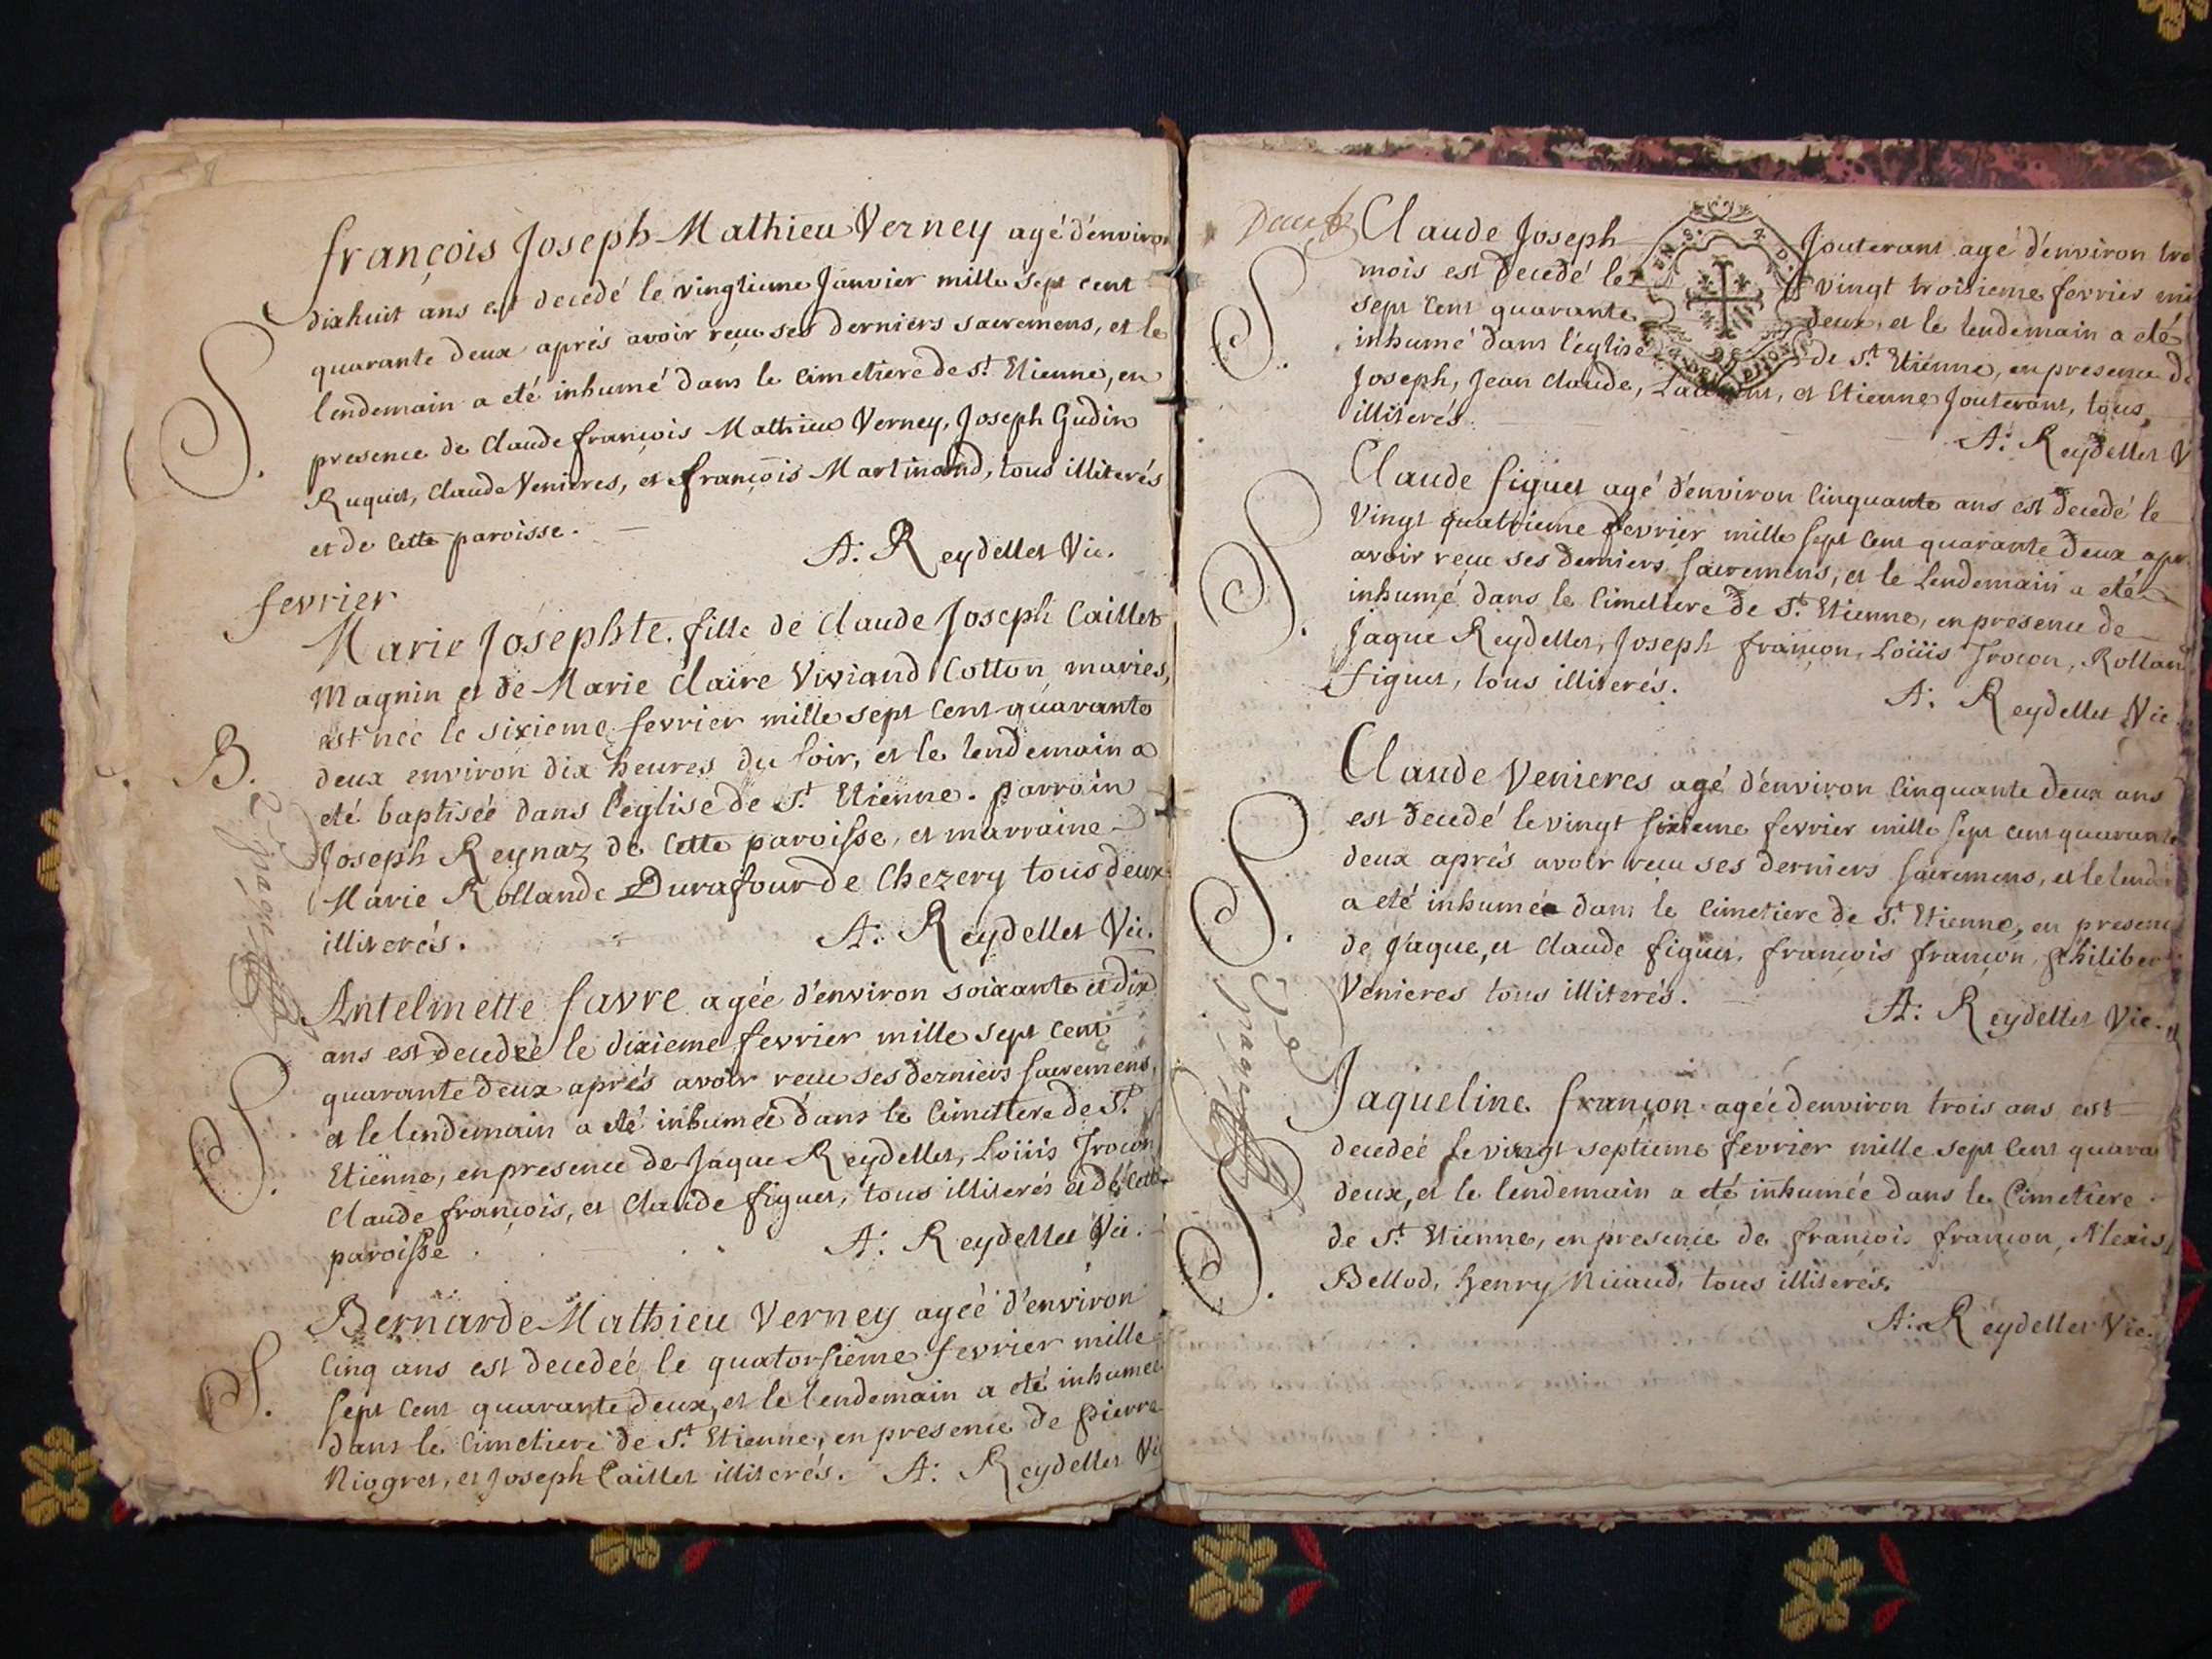 françois Joseph Mathieu Verney agé d'environ
dixhuit ans est decedé le vingtieme Janvier mille sept cent
quarante deux aprés avoir reçu ses derniers sacremens, et le
lendemain a eté inhumé dans le cimetiere de St. Etienne, en
presence de Claude françois Mathieu Verney, Joseph Gudin
Ruquet, Claude Venieres, et françois Martinand, tous illiterés
et de cette paroisse.
S.
A: Reydellet Vic.
fevrier
Marie Josephte fille de Claude Joseph Caillet
Magnin et de Marie Claire Viviand Cotton mariés,
est née le sixieme fevrier mille sept cent quarante
deux environ dix heures du soir, et le lendemain a
B.
eté baptisée dans l'eglise de St. Etienne. parrain
Joseph Reynaz de cette paroisse, et marraine
Marie Rollande Durafour de Chezery tous deux
illiterés.
A: Reydellet Vic.
Antelmette favre agée d'environ soixante et dix
ans est decedée le dixieme fevrier mille sept cent
quarante deux aprés avoir reçu ses derniers sacremens,
et le lendemain a eté inhumée dans le cimetiere de St.
S.
Etienne, en presence de Jaque Reydellet, Loüis Trocon
Claude françois, et Claude figuet, tous illiterés et de cette
paroisse.
A: Reydellet Vic.
Bernarde Mathieu Verney agée d'environ
cinq ans est decedée le quatorsieme fevrier mille
S.
sept cent quarante deux, et le lendemain a eté inhumée
dans le cimetiere de St. Etienne, en presence de pierre
Niogret, et Joseph Caillet illiterés. A: Reydellet Vic
Deux
Claude Joseph Jouterant agé d'environ tro
mois est decedé le vingt troisieme fevrier mi
S.
sept cent quarante deux, et le lendemain a eté
inhumé dans l'eglise de St. Etienne, en presence de
Joseph, Jean Claude, Laurent, et Etienne Jouterant, tous
illiterés.
A: Reydellet V
Claude figuet agé d'environ cinquante ans est decedé le
vingt quatrieme fevrier mille sept cent quarante deux apr
avoir reçu ses derniers sacremens, et le lendemain a eté
S.
inhumé dans le cimetiere de St. Etienne, en presence de
Jaque Reydellet, Joseph françon, Loüis Trocon, Rolland
figuet, tous illiterés.
A: Reydellet Vic
Claude Venieres agé d'environ cinquante deux ans
est decedé le vingt sixieme fevrier mille sept cent quarante
deux aprés avoir reçu ses derniers sacremens, et le lende
S.
a eté inhumé dans le cimetiere de St. Etienne, en presence
de Jaque, et Claude figuet, françois françon, philiber
Venieres tous illiterés.
A: Reydellet Vic.
Jaqueline françon agée d'environ trois ans est
decedée le vingt septieme fevrier mille sept cent quara
deux, et le lendemain a eté inhumée dans le cimetiere
de St. Etienne, en presence de françois françon, Alexis
S.
Bellod, henry Nicaud, tous illiterés.
A: Reydellet Vic.